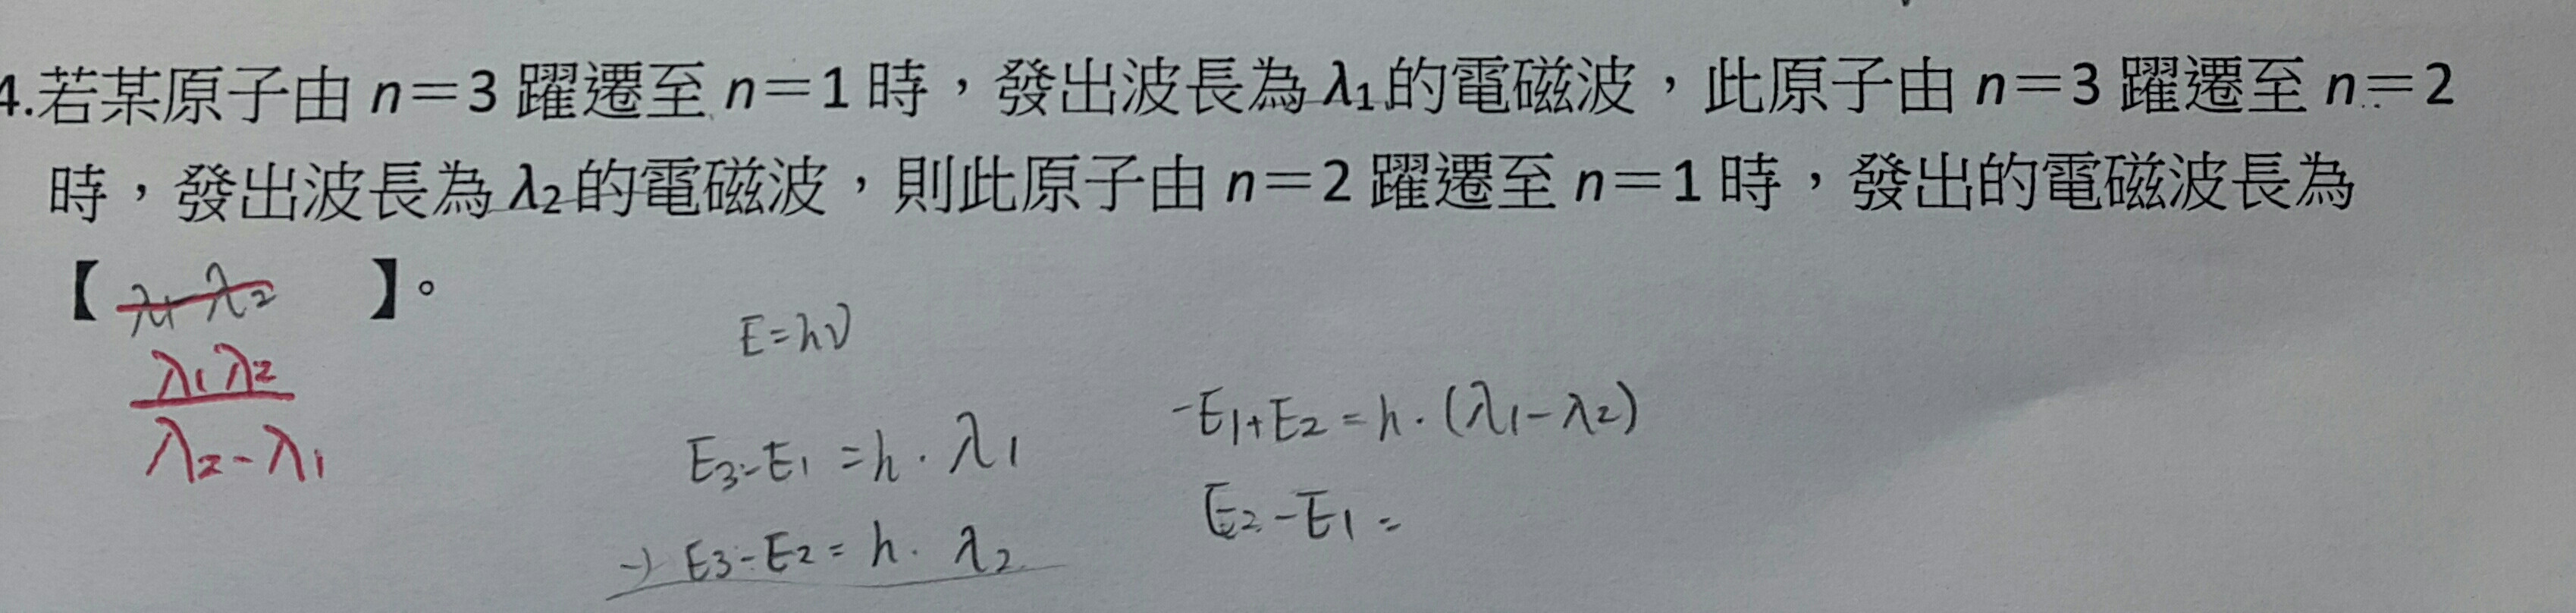 4.若某原子由 n=3 躍遷至 n=1 時，發出波長為 λ1 的電磁波，此原子由 n=3 躍遷至 n=2
時，發出波長為 λ2 的電磁波，則此原子由 n=2 躍遷至 n=1 時，發出的電磁波長為
【 λ1-λ2 】。
λ1λ2
λ2-λ1
E=hν
E3-E1=h·λ1
-) E3-E2=h·λ2
-E1+E2=h·(λ1-λ2)
E2-E1=